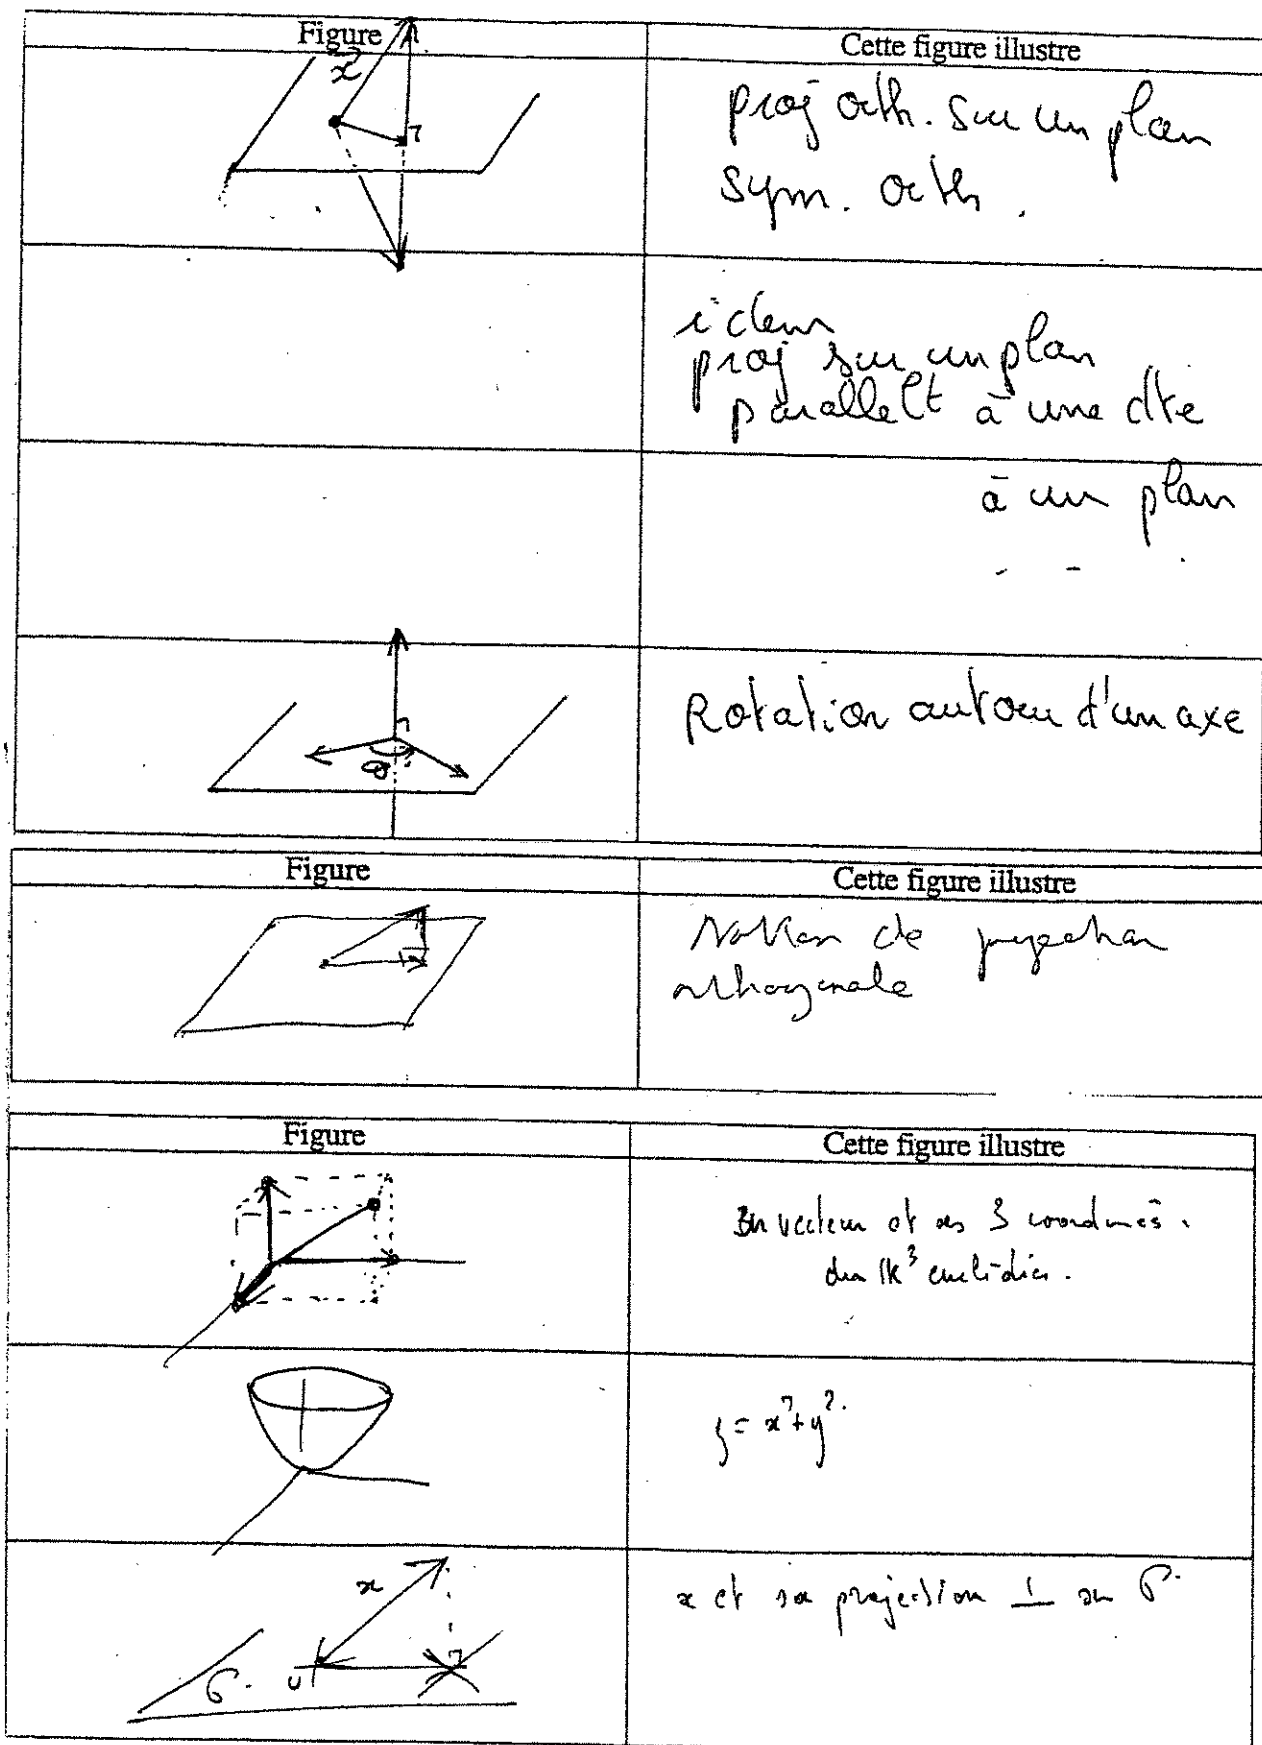 Figure
Cette figure illustre
x
proj orth. sur un plan
sym. orth.
idem
proj sur un plan
parallelt à une dte
à un plan
- - .
θ
Rotation autour d'un axe
Figure
Cette figure illustre
Notion de projection
orthogonale
Figure
Cette figure illustre
Un vecteur et ses 3 coordonnées.
dans IR³ euclidien.
z = x² + y².
x
P. 0
x et sa projection ⊥ sur P.